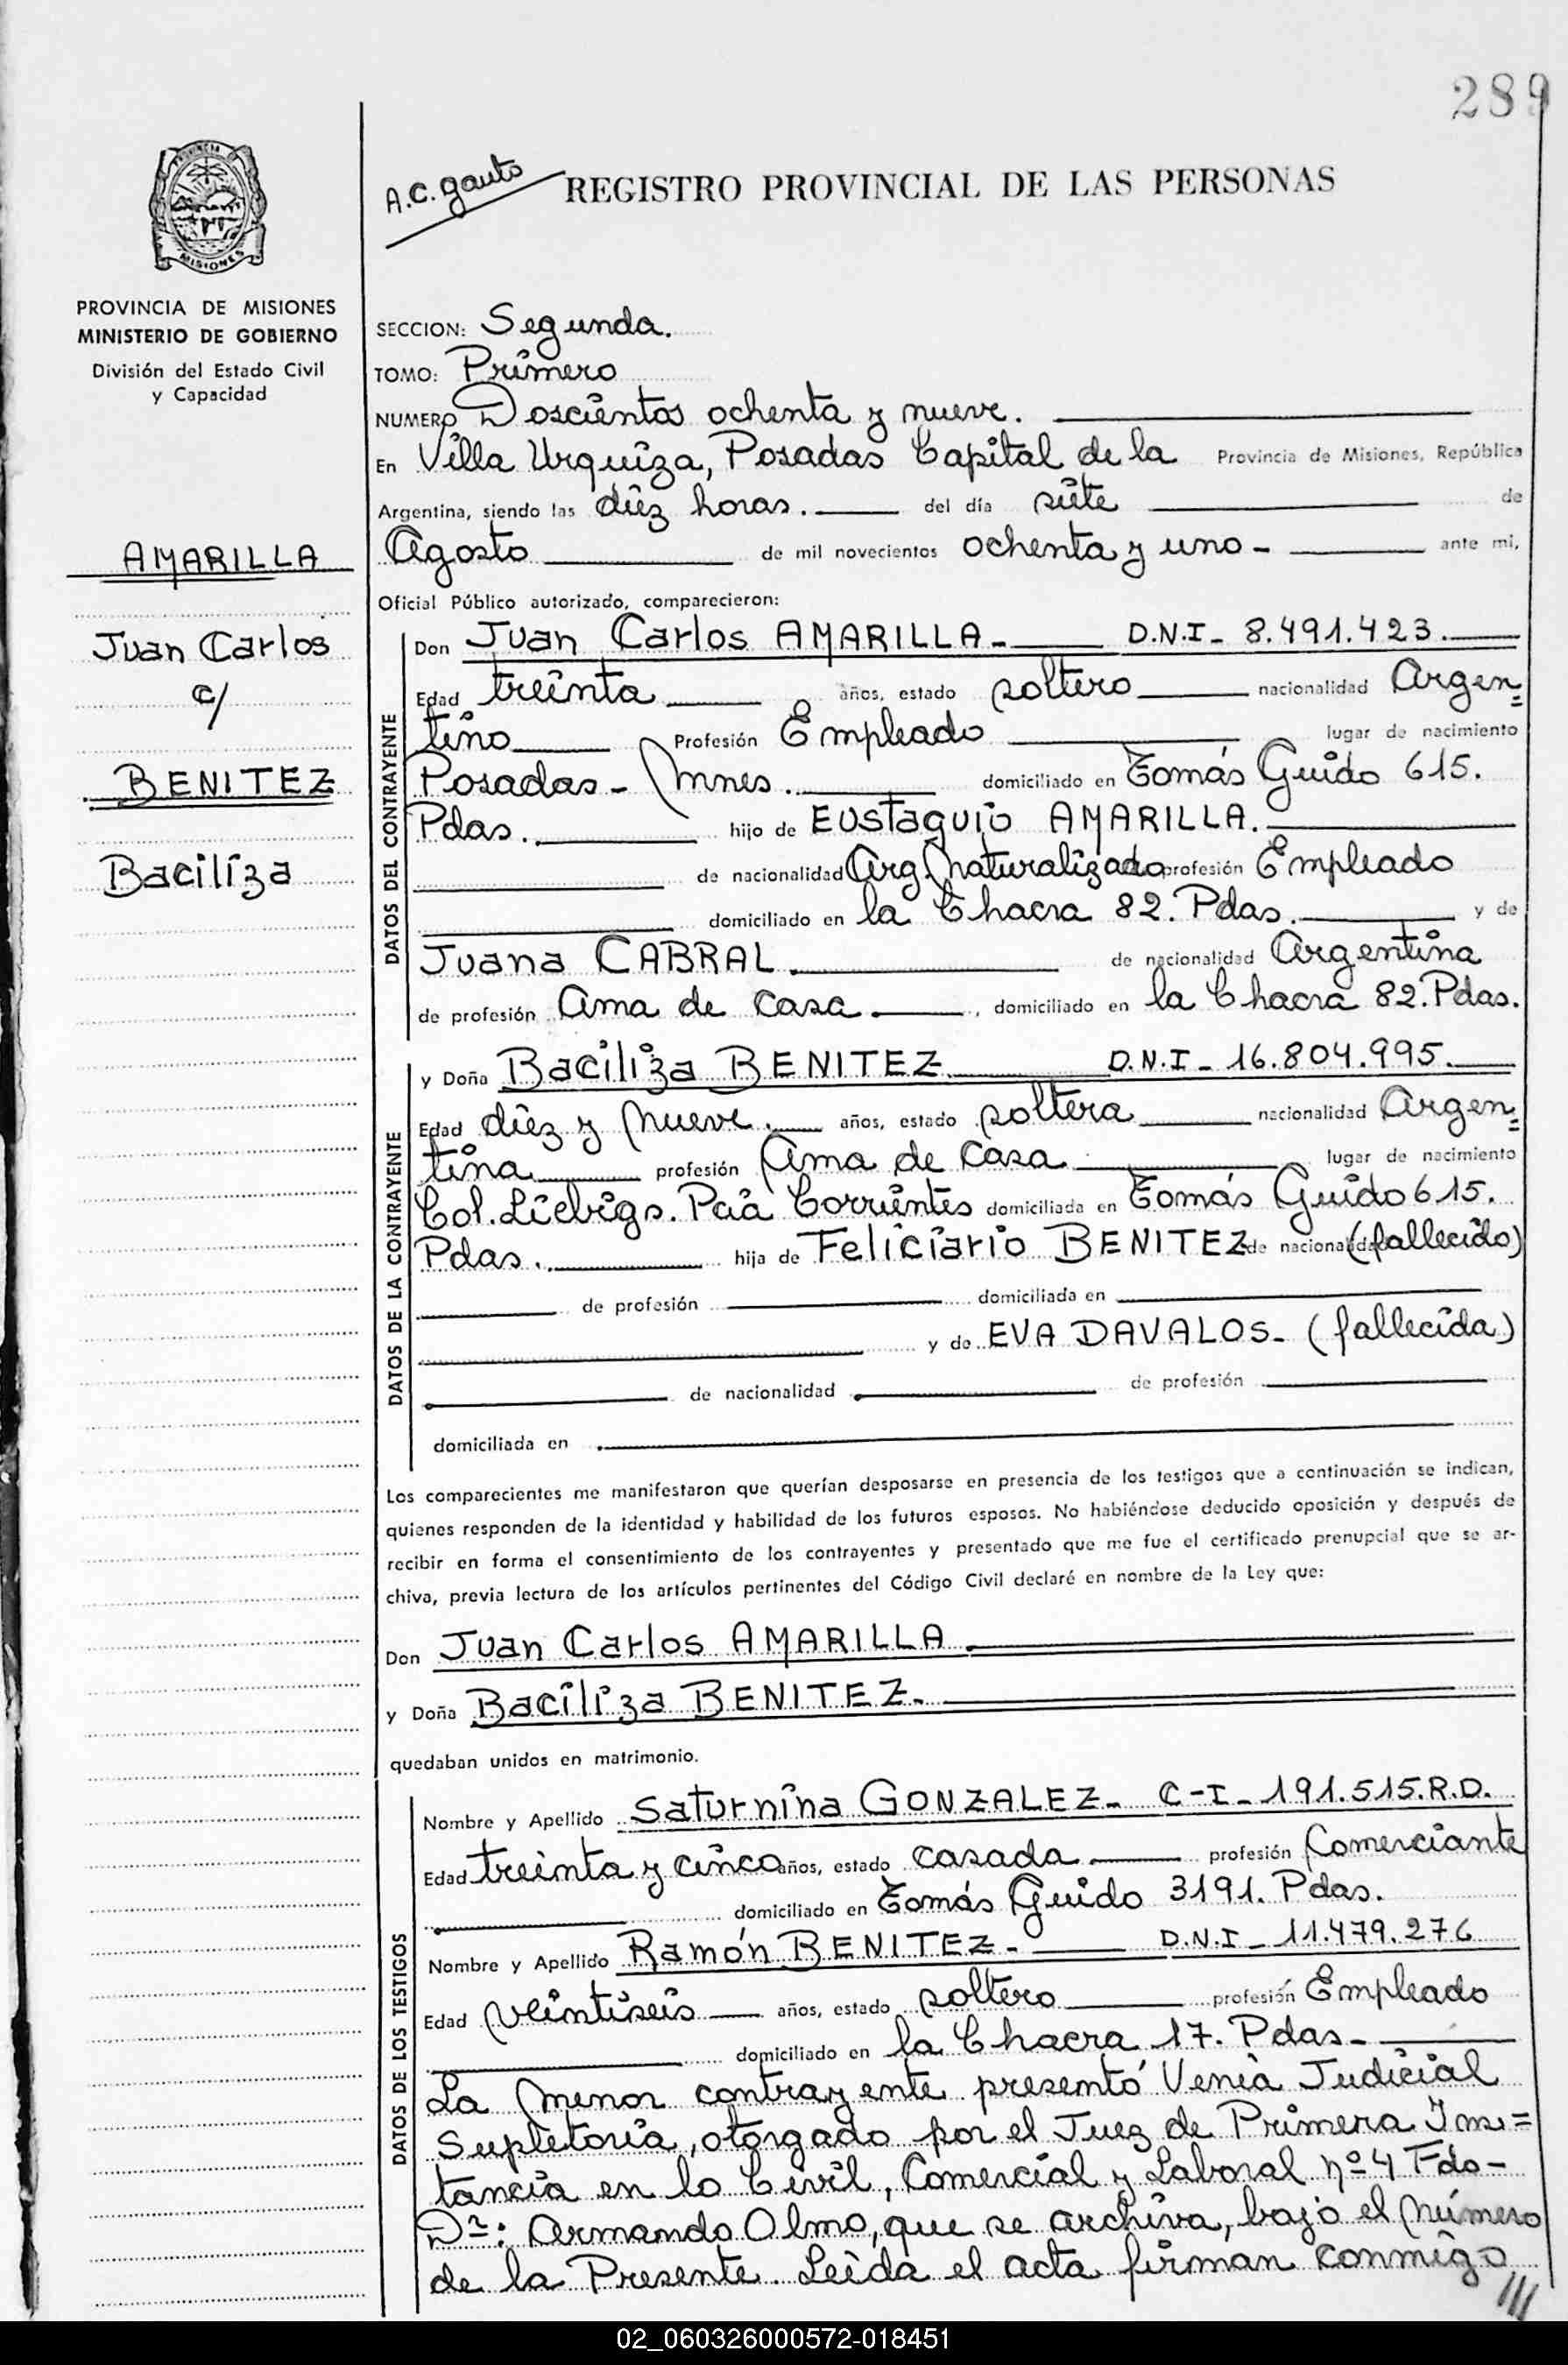 289
A.C. Gauto
REGISTRO PROVINCIAL DE LAS PERSONAS
PROVINCIA
MISIONES
PROVINCIA DE MISIONES
MINISTERIO DE GOBIERNO
División del Estado Civil
y Capacidad
AMARILLA
Juan Carlos
c/
BENITEZ
Baciliza
SECCION: Segunda.
TOMO: Primero
NUMERO Doscientos ochenta y nueve.
En Villa Urquiza, Posadas Capital de la Provincia de Misiones, República
Argentina, siendo las diez horas. del día siete de
Agosto de mil novecientos ochenta y uno - ante mi,
Oficial Público autorizado, comparecieron:
DATOS DEL CONTRAYENTE
Don Juan Carlos AMARILLA - D.N.I - 8.491.423.
Edad treinta años, estado soltero nacionalidad Argen=
tino Profesión Empleado lugar de nacimiento
Posadas - Mnes. domiciliado en Tomás Guido 615.
Pdas. hijo de EUSTaquio AMARILLA.
de nacionalidad Arg. Naturalizado profesión Empleado
domiciliado en la Chacra 82. Pdas. y de
Juana CABRAL. de nacionalidad Argentina
de profesión Ama de Casa., domiciliado en la Chacra 82. Pdas.
DATOS DE LA CONTRAYENTE
y Doña Baciliza BENITEZ D.N.I - 16.804.995.
Edad diez y Nueve. años, estado soltera nacionalidad Argen=
tina profesión Ama de Casa. lugar de nacimiento
Col. Liebigs. Pcia Corrientes domiciliada en Tomás Guido 615.
Pdas. hija de Feliciario BENITEZ de nacionalidad (fallecido)
de profesión domiciliada en
y de EVA DAVALOS - (fallecida)
de nacionalidad de profesión
domiciliada en
Los comparecientes me manifestaron que querían desposarse en presencia de los testigos que a continuación se indican,
quienes responden de la identidad y habilidad de los futuros esposos. No habiéndose deducido oposición y después de
recibir en forma el consentimiento de los contrayentes y presentado que me fue el certificado prenupcial que se ar-
chiva, previa lectura de los artículos pertinentes del Código Civil declaré en nombre de la Ley que:
Don Juan Carlos AMARILLA.
y Doña Baciliza BENITEZ.
quedaban unidos en matrimonio.
DATOS DE LOS TESTIGOS
Nombre y Apellido Saturnina GONZALEZ - C-I - 191.515.R.D.
Edad treinta y cinco años, estado casada profesión Comerciante
domiciliado en Tomás Guido 3191. Pdas.
Nombre y Apellido Ramón BENITEZ - D.N.I - 11.479.276
Edad veintiseis años, estado soltero profesión Empleado
domiciliado en la Chacra 17. Pdas -
La Menor contrayente presentó Venia Judicial
Supletoria, otorgado por el Juez de Primera Ins=
tancia en lo Civil, Comercial y Laboral nº 4 Fdo-
Dr: Armando Olmo, que se archiva, bajo el Número
de la Presente. Leida el acta firman conmigo
///
02_060326000572-018451